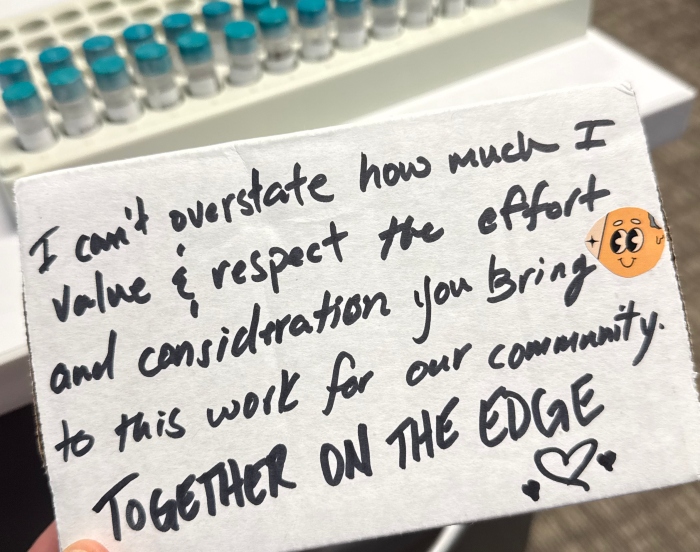 I can't overstate how much I
value & respect the effort
and consideration you Bring
to this work for our community.
TOGETHER ON THE EDGE